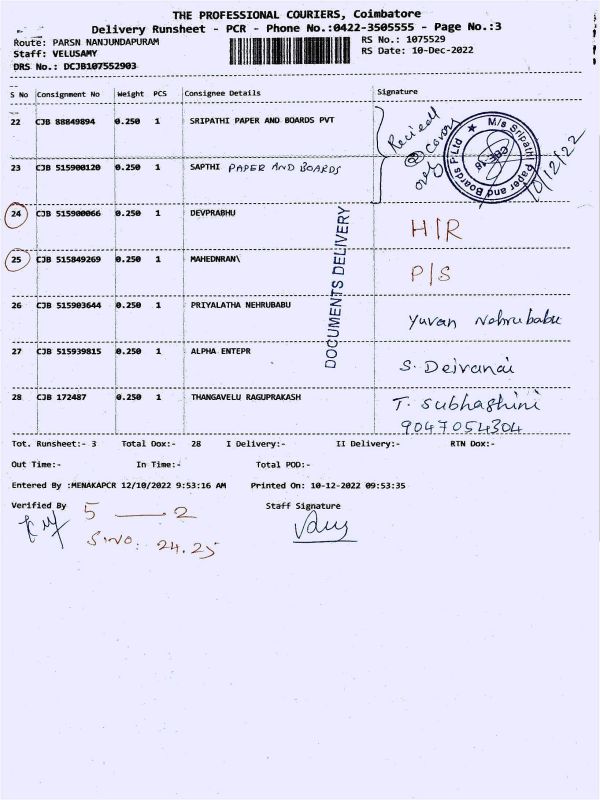 THE PROFESSIONAL COURIERS, Coimbatore
Delivery Runsheet - PCR - Phone No.:0422-3505555 - Page No.:3
Route: PARSN NANJUNDAPURAM
RS No.: 1075529
Staff: VELUSAMY
RS Date: 10-Dec-2022
DRS No.: DCJB107552903
S No Consignment No Weight PCS Consignee Details Signature
22 CJB 88849894 0.250 1 SRIPATHI PAPER AND BOARDS PVT
covers
M/s Sripathi Paper and Boards P Ltd
10/12/22
23 CJB 515900120 0.250 1 SAPTHI PAPER AND BOARDS
24 CJB 515900066 0.250 1 DEVPRABHU H/R
25 CJB 515849269 0.250 1 MAHEDNRAN\ P/S
DOCUMENTS DELIVERY
26 CJB 515903644 0.250 1 PRIYALATHA NEHRUBABU Yuvan Nehrubabu
27 CJB 515939815 0.250 1 ALPHA ENTEPR S. Deivanai
28 CJB 172487 0.250 1 THANGAVELU RAGUPRAKASH T. Subhashini
9047054304
Tot. Runsheet:- 3 Total Dox:- 28 I Delivery:- II Delivery:- RTN Dox:-
Out Time:- In Time:- Total POD:-
Entered By :MENAKAPCR 12/10/2022 9:53:16 AM Printed On: 10-12-2022 09:53:35
Verified By 5 — 2 Staff Signature
S.NO: 24.25